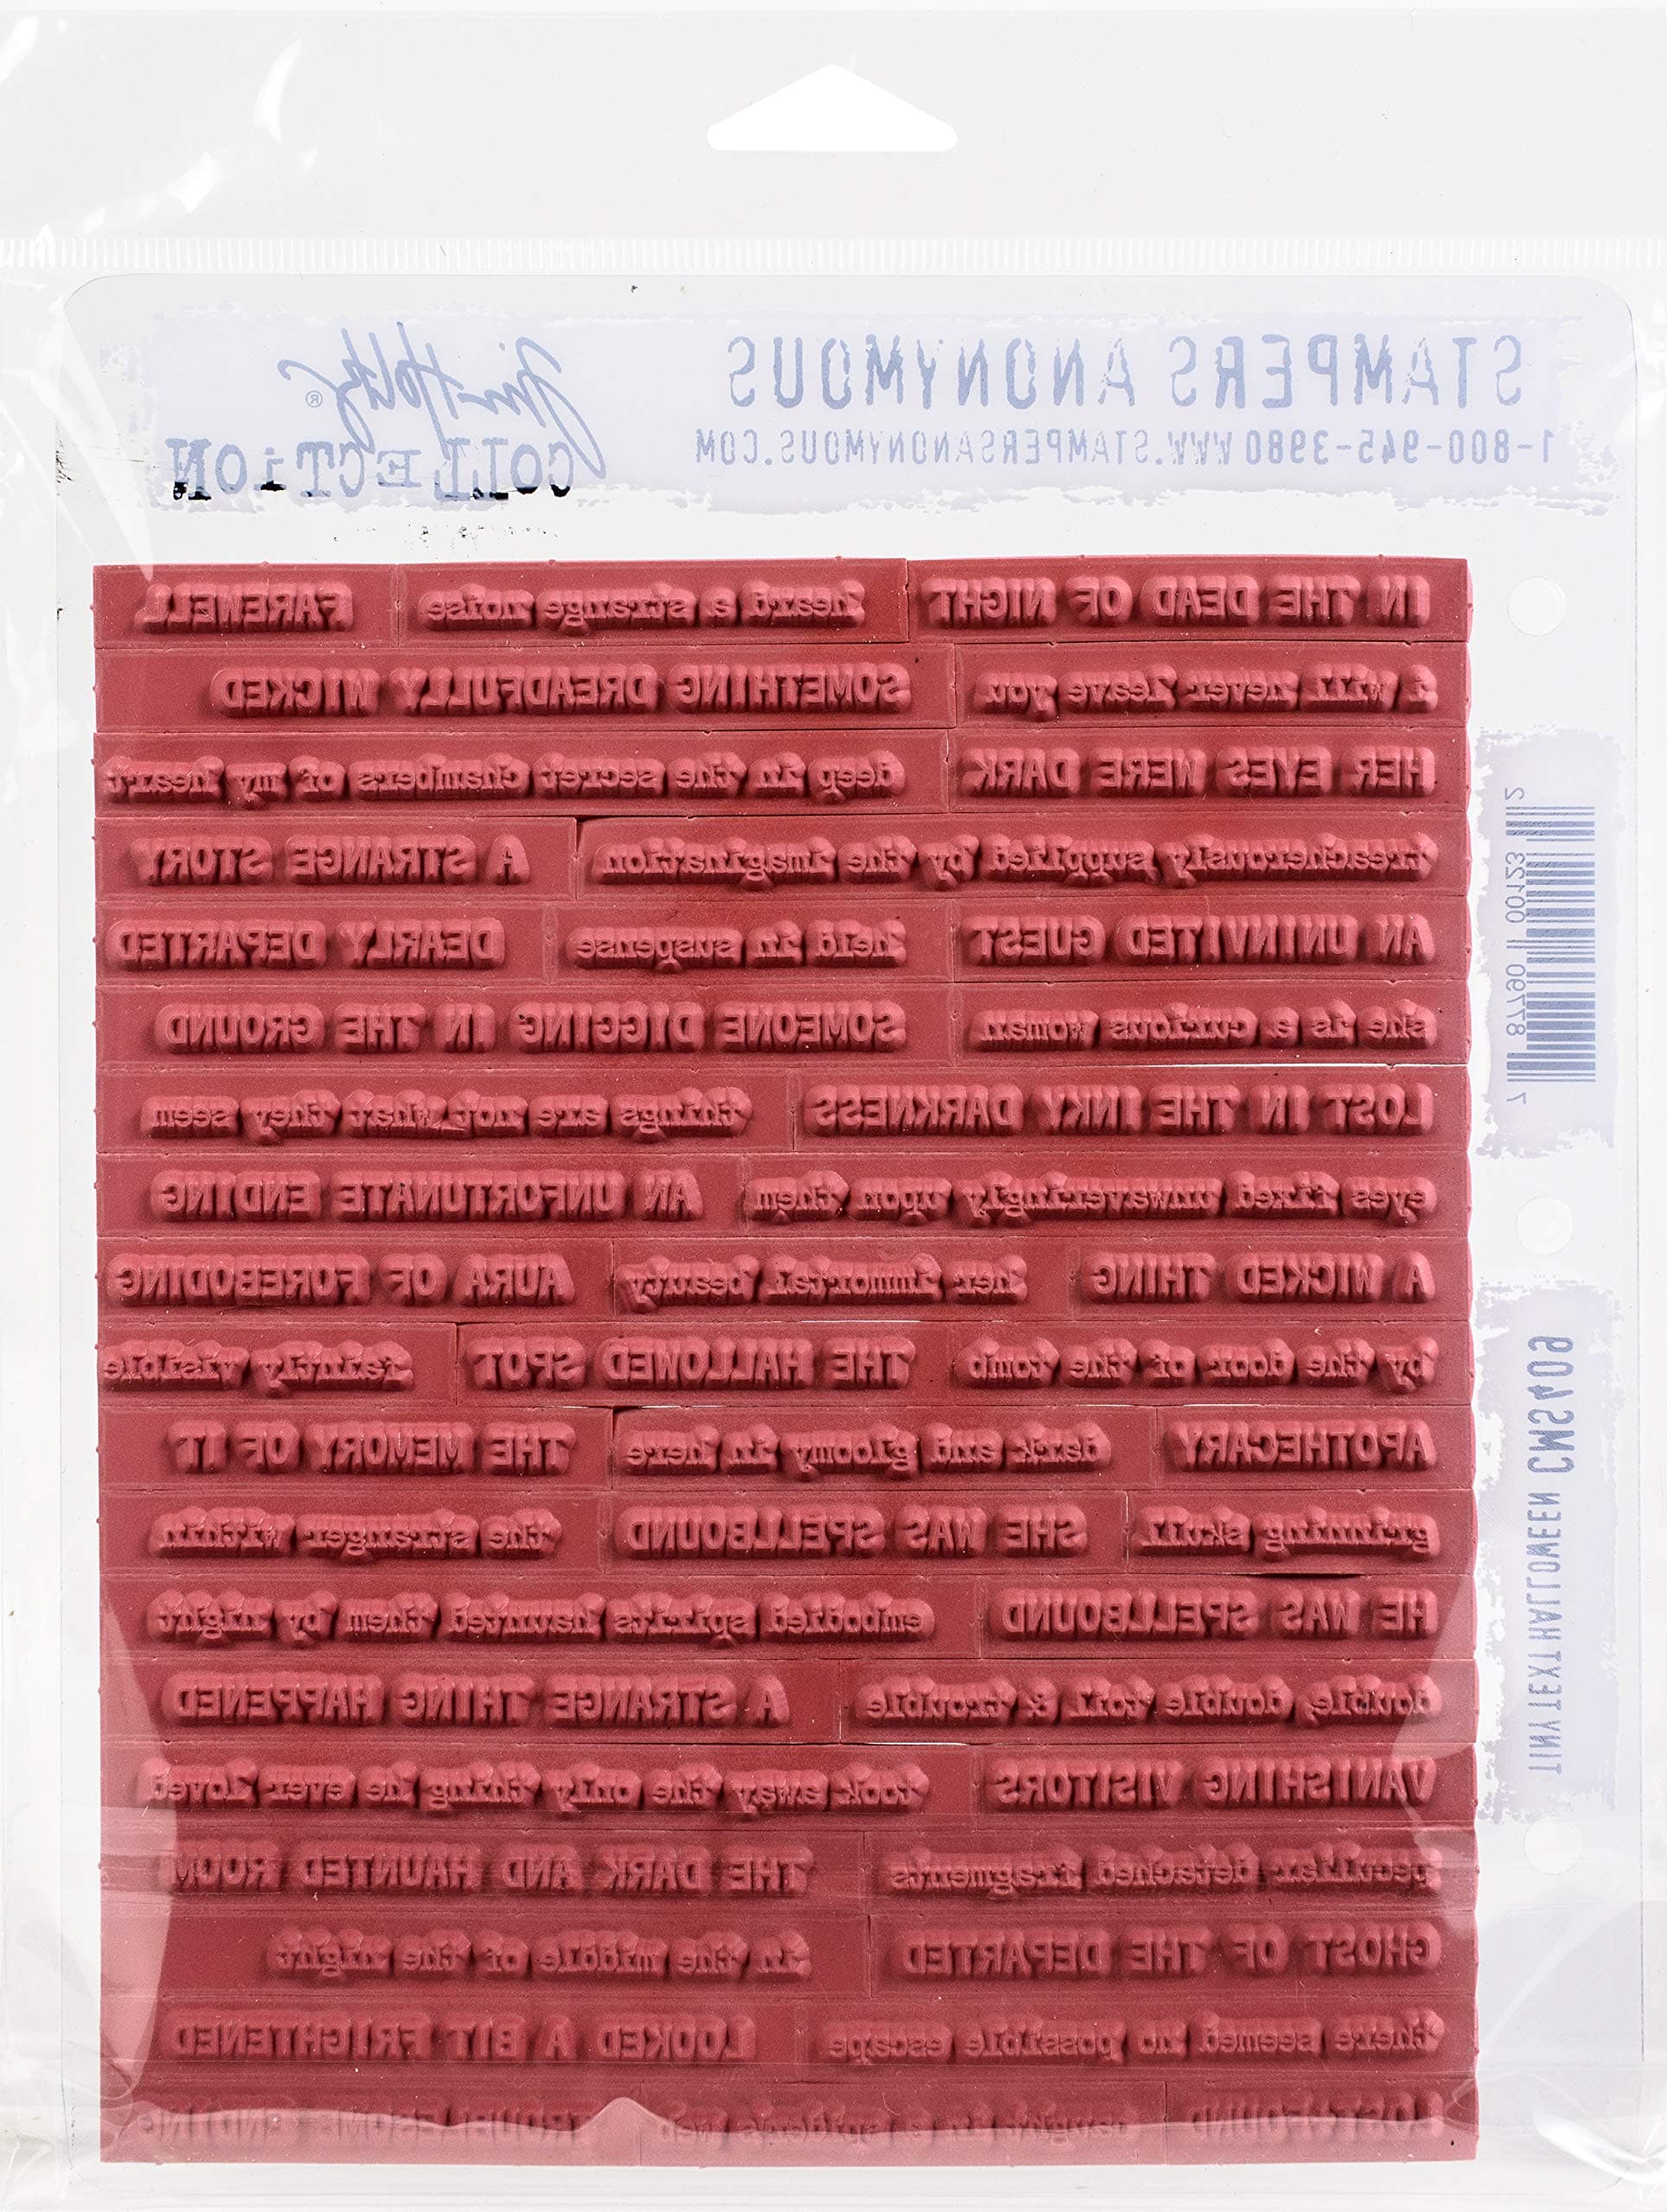 STAMPERS ANONYMOUS
1-800-945-3980 WWW.STAMPERSANONYMOUS.COM
Tim Holtz®
COLLECTION
IN THE DEAD OF NIGHT heard a strange noise FAREWELL
I will never leave you SOMETHING DREADFULLY WICKED
HER EYES WERE DARK deep in the secret chambers of my heart
treacherously supplied by the imagination A STRANGE STORY
AN UNINVITED GUEST held in suspense DEARLY DEPARTED
she is a curious woman SOMEONE DIGGING IN THE GROUND
LOST IN THE INKY DARKNESS things are not what they seem
eyes fixed unwaveringly upon them AN UNFORTUNATE ENDING
A WICKED THING her immortal beauty AURA OF FOREBODING
by the door of the tomb THE HALLOWED SPOT faintly visible
APOTHECARY dark and gloomy in here THE MEMORY OF IT
grinning skull SHE WAS SPELLBOUND the stranger within
HE WAS SPELLBOUND embodied spirits haunted them by night
double, double toil & trouble A STRANGE THING HAPPENED
VANISHING VISITORS took away the only thing he ever loved
peculiar detached fragments THE DARK AND HAUNTED ROOM
GHOST OF THE DEPARTED in the middle of the night
there seemed no possible escape LOOKED A BIT FRIGHTENED
caught in a spider's TROUBLESOME ENDING
7 87790 00123 2
TINY TEXT HALLOWEEN CMS409